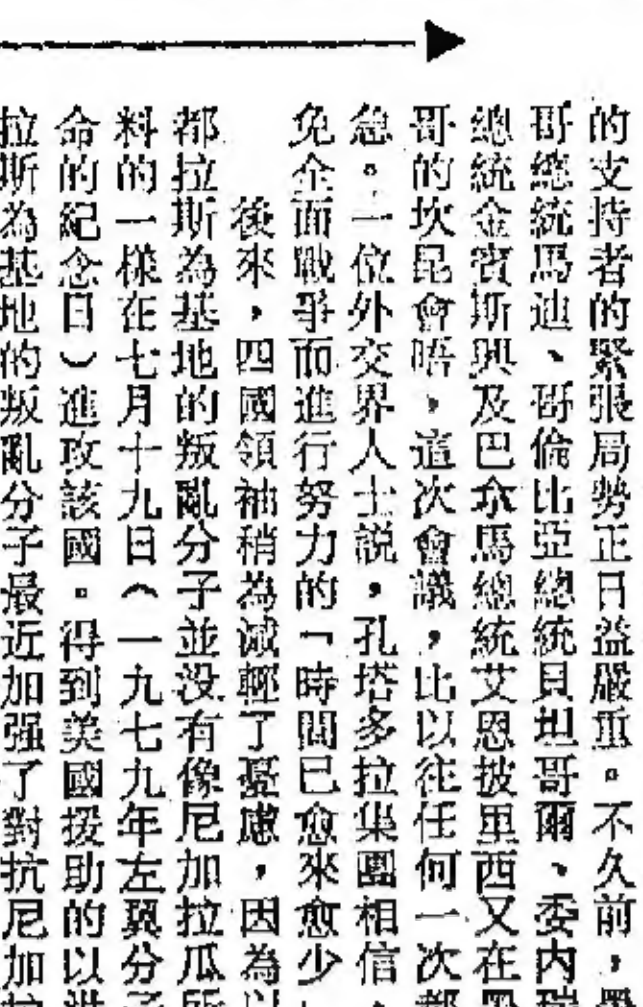 的支持者的緊張局勢正日益嚴重。不久前，墨
哥總統馬迪、哥倫比亞總統貝坦哥爾、委內瑞
總統金賓斯興及巴拿馬總統艾恩披里西又在墨
哥的坎昆會晤，這次會議，比以往任何一次都
急。一位外交界人士説，孔塔多拉集團相信，
免全面戰爭而進行努力的「時間已愈來愈少」
後來，四國領袖稍為減輕了憂慮，因為以
都拉斯為基地的叛亂分子並没有像尼加拉瓜所
料的一樣在七月十九日（一九七九年左翼分子
命的紀念日）進攻該國。得到美國援助的以洪
拉斯為基地的叛亂分子最近加强了對抗尼加拉